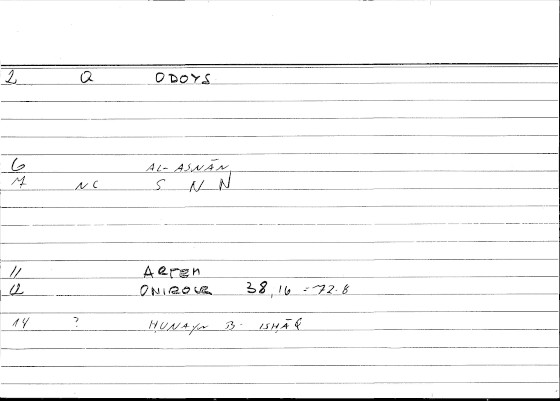 2 Q ODOYS
6 AL-ASNĀN
7 NC S N N
11 ARTEM
12 ONIROCR 38,16 = 72.8
14 ? ḤUNAYN B. ISḤĀQ